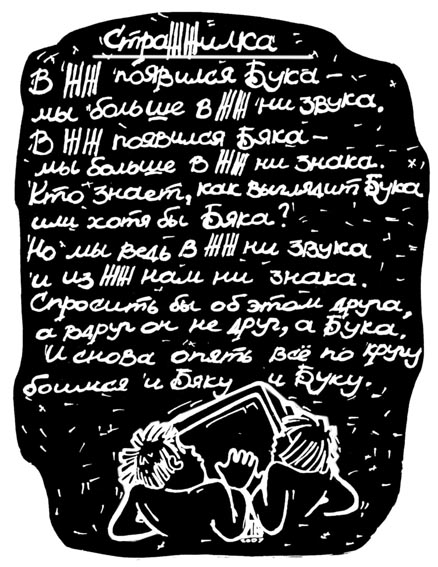 СтраЖЖилка
В ЖЖ появился Бука –
мы больше в ЖЖ ни звука.
В ЖЖ появился Бяка –
мы больше в ЖЖ ни знака.
Кто знает, как выглядит Бука
или хотя бы Бяка?
Но мы ведь в ЖЖ ни звука
и из ЖЖ нам ни знака.
Спросить бы об этом друга,
а вдруг он не друг, а Бука.
И снова опять всё по кругу
боимся и Бяку и Буку.